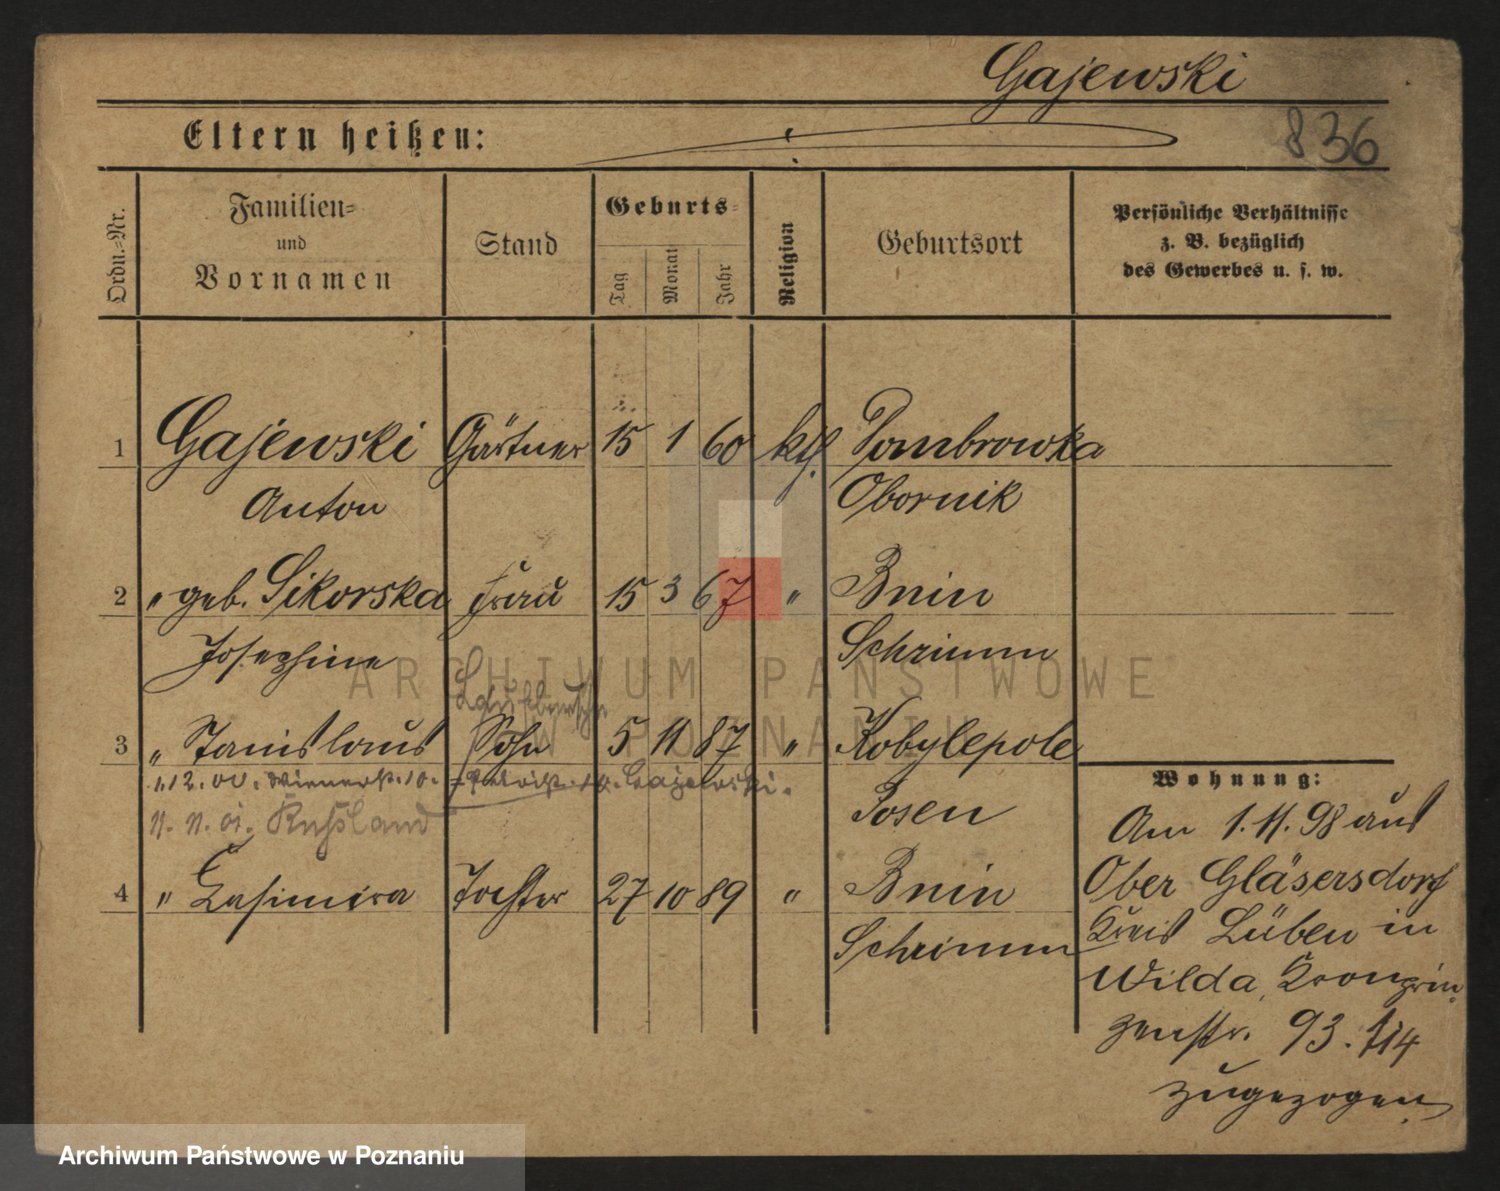 Gajewski
836
Eltern heißen:
Ordn.=Nr.
Familien=
und
Vornamen
Stand
Geburts=
Tag
Monat
Jahr
Religion
Geburtsort
Persönliche Verhältnisse
z. B. bezüglich
des Gewerbes u. s. w.
1 Gajewski Gärtner 15 1 60 kth. Dombrowka
Anton Obornik
2 " geb. Sikorska Frau 15 3 67 " Bnin
Josephine Schrimm
Laufbursche
3 " Stanislaus Sohn 5 11 87 " Kobylepole
1.12.00. Wienerst. 10. Gajewski.
n. Rußland Posen
4 " Casimira Tochter 27 10 89 " Bnin
Schrimm
Wohnung:
Am 1.11.98 aus
Ober Gläsersdorf
Kreis Lüben in
Wilda, Kronprin
zenstr. 93.
zugezogen
ARCHIWUM PAŃSTWOWE
W POZNANIU
Archiwum Państwowe w Poznaniu